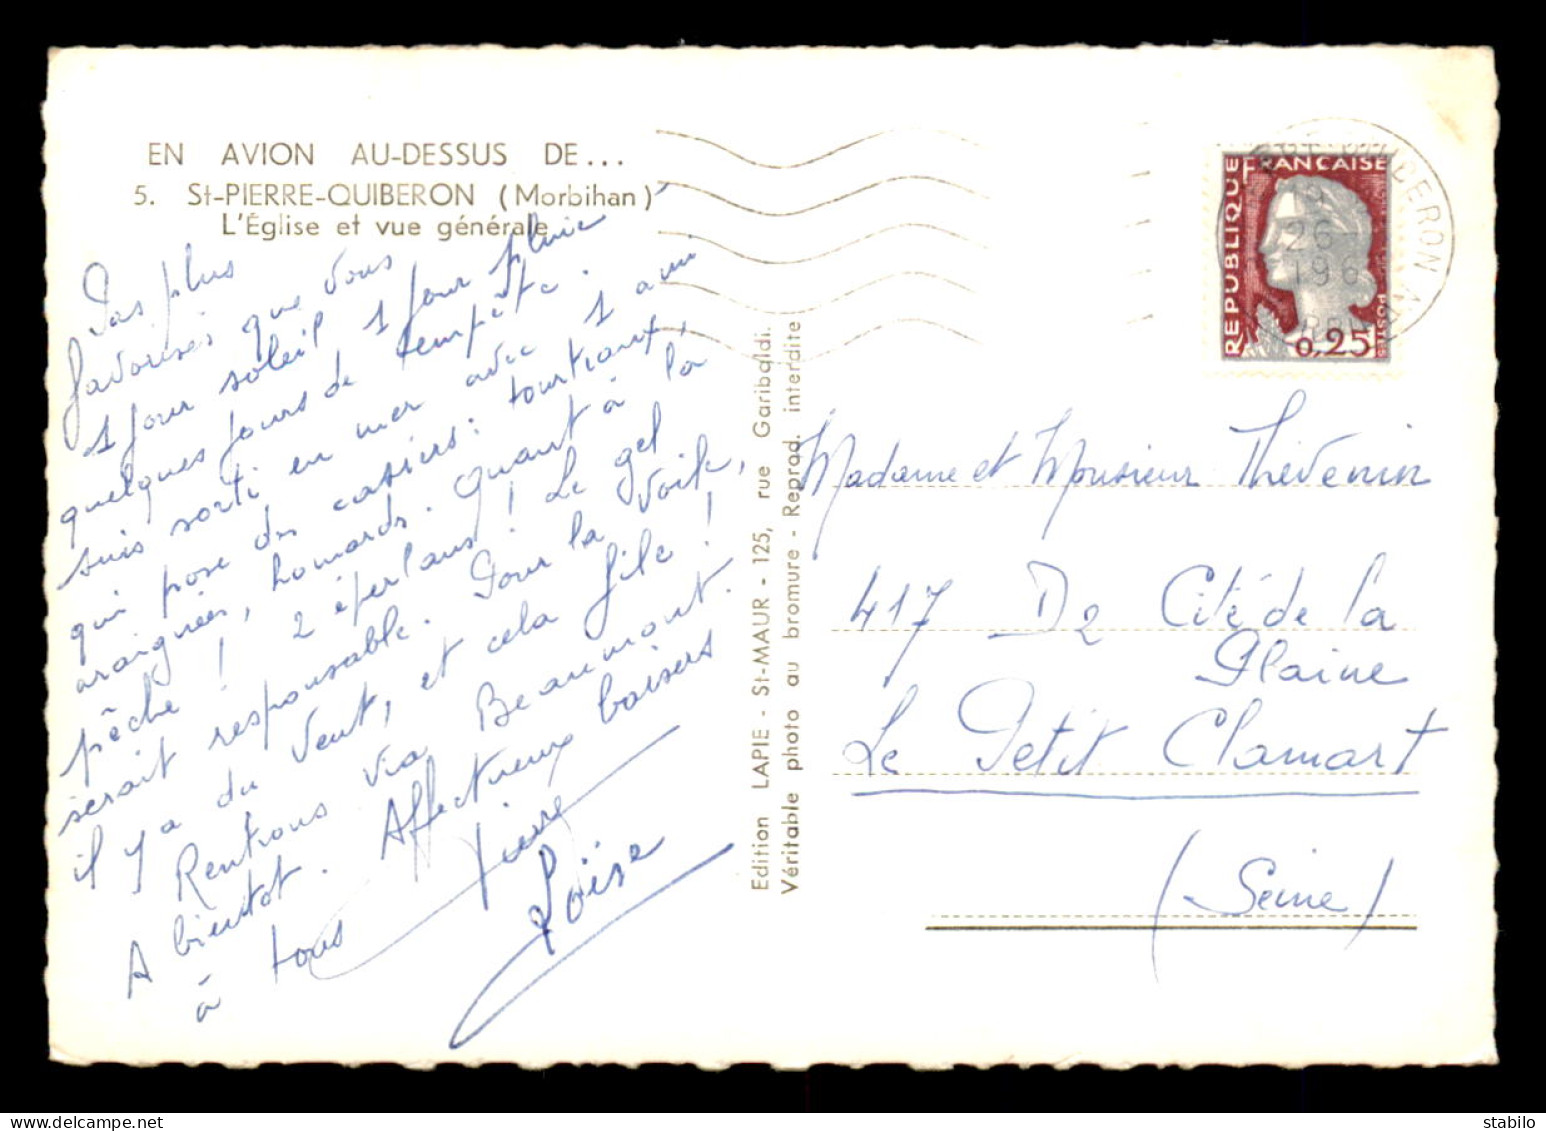 EN AVION AU-DESSUS DE...
5. St-PIERRE-QUIBERON (Morbihan)
L'Église et vue générale
Pas plus
favorisés que vous
1 jour soleil 1 jour pluie
quelques jours de tempête.
suis sorti en mer avec 1 ami
qui pose des casiers: tourteaux,
araignées, homards. Quant à la
pêche ! 2 éperlans ! Le gel
serait responsable. Pour la voile,
il y a du vent, et cela file !
Rentrons via Beaumont.
A bientôt. Affectueux baisers
à tous Pierre
Loïse
Edition LAPIE - St-MAUR - 125, rue Garibaldi.
Véritable photo au bromure - Reprod. interdite
REPUBLIQUE FRANCAISE
POSTES
0,25
26-
196
Madame et Monsieur Thévenin
417 D2 Cité de la
Plaine
Le Petit Clamart
(Seine)
stabilo